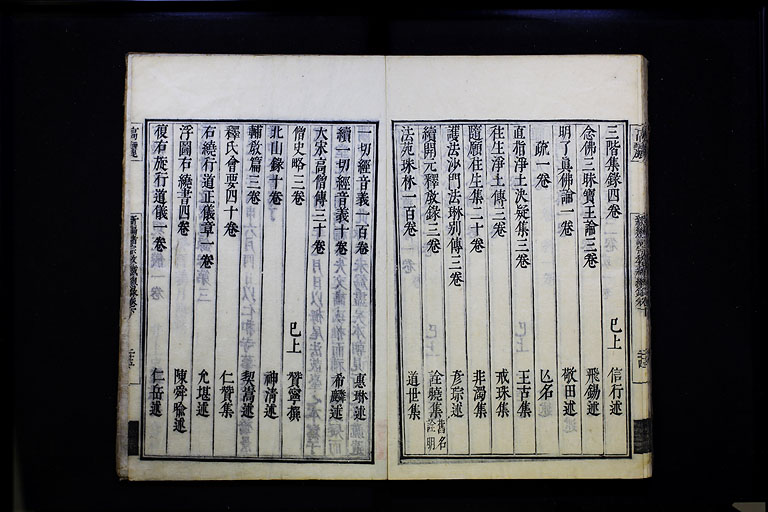 三階集錄四卷 已上 信行述
念佛三昧寶王論三卷 飛錫述
明了真佛論一卷 敬田述
疏一卷 亾名
直指淨土決疑集三卷 王古集
往生淨土傳三卷 戒珠集
隨願往生集二十卷 非濁集
護法沙門法琳別傳三卷 彥琮述
續開元釋教錄三卷 詮曉集舊名詮明
法苑珠林一百卷 道世集
一切經音義一百卷 惠琳述
續一切經音義十卷 希麟述
大宋高僧傳三十卷
僧史略三卷 已上 贊寧撰
北山錄十卷 神清述
輔教篇三卷 契嵩述
釋氏會要四十卷 仁贊集
右繞行道正儀章一卷 允堪述
浮圖右繞書四卷 陳舜喻述
復右旋行道儀一卷 仁岳述